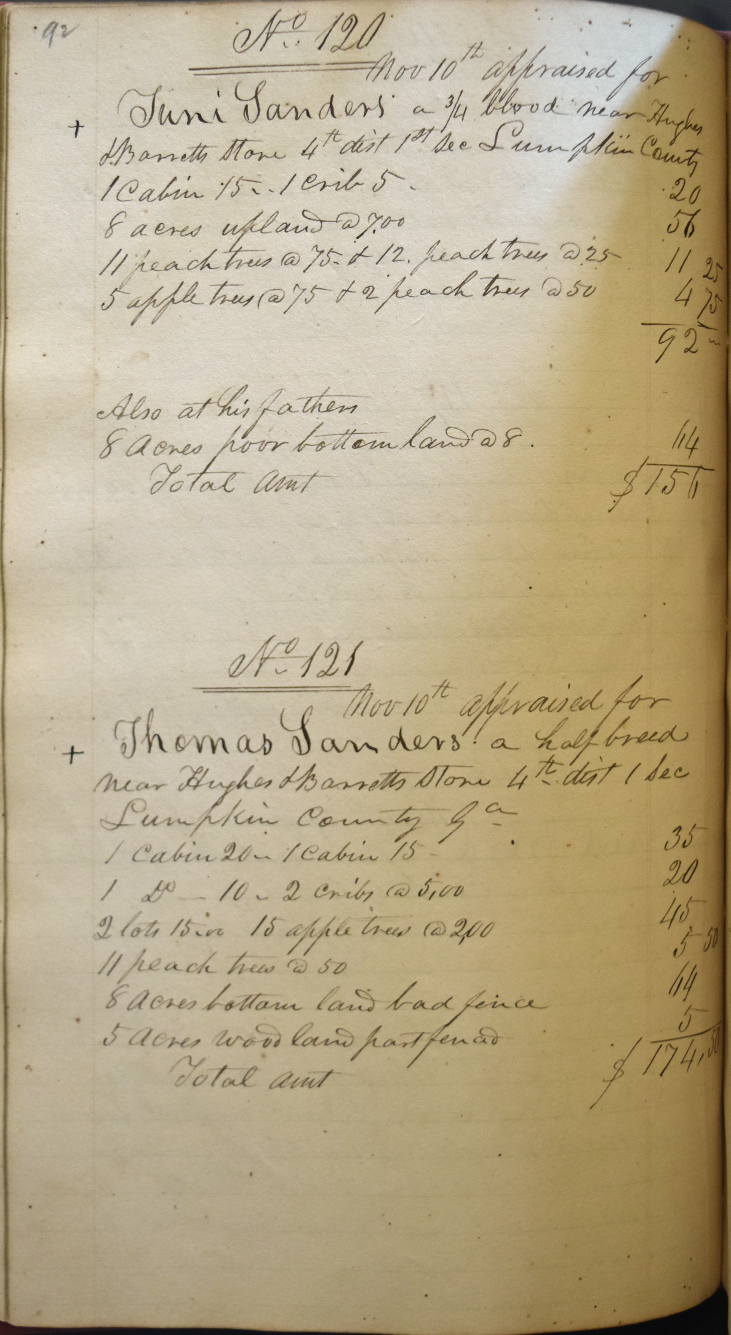 92
No. 120
Nov 10th appraised for
+ Juni Sanders a 3/4 blood near Hughes
& Barretts Store 4th dist 1st Sec Lumpkin County
1 Cabin 15.. 1 Crib 5. 20
8 acres upland @ 7.00 56
11 peach trees @ 75. & 12. peach trees @ 25 11 25
5 apple trees @ 75 & 2 peach trees @ 50 4 75
92 "
Also at his fathers
8 Acres poor bottom land @ 8. 64
Total Amt $156
No. 121
Nov 10th appraised for
+ Thomas Sanders a half breed
near Hughes & Barretts Store 4th dist 1 Sec
Lumpkin County Ga
1 Cabin 20.. 1 Cabin 15 - 35
1 Do — 10.. 2 cribs @ 5,00 20
2 lots 15.00 15 apple trees @ 2,00 45
11 peach trees @ 50 5 50
8 Acres bottom land bad fence 64
5 Acres wood land part fenced 5
Total Amt $174,50